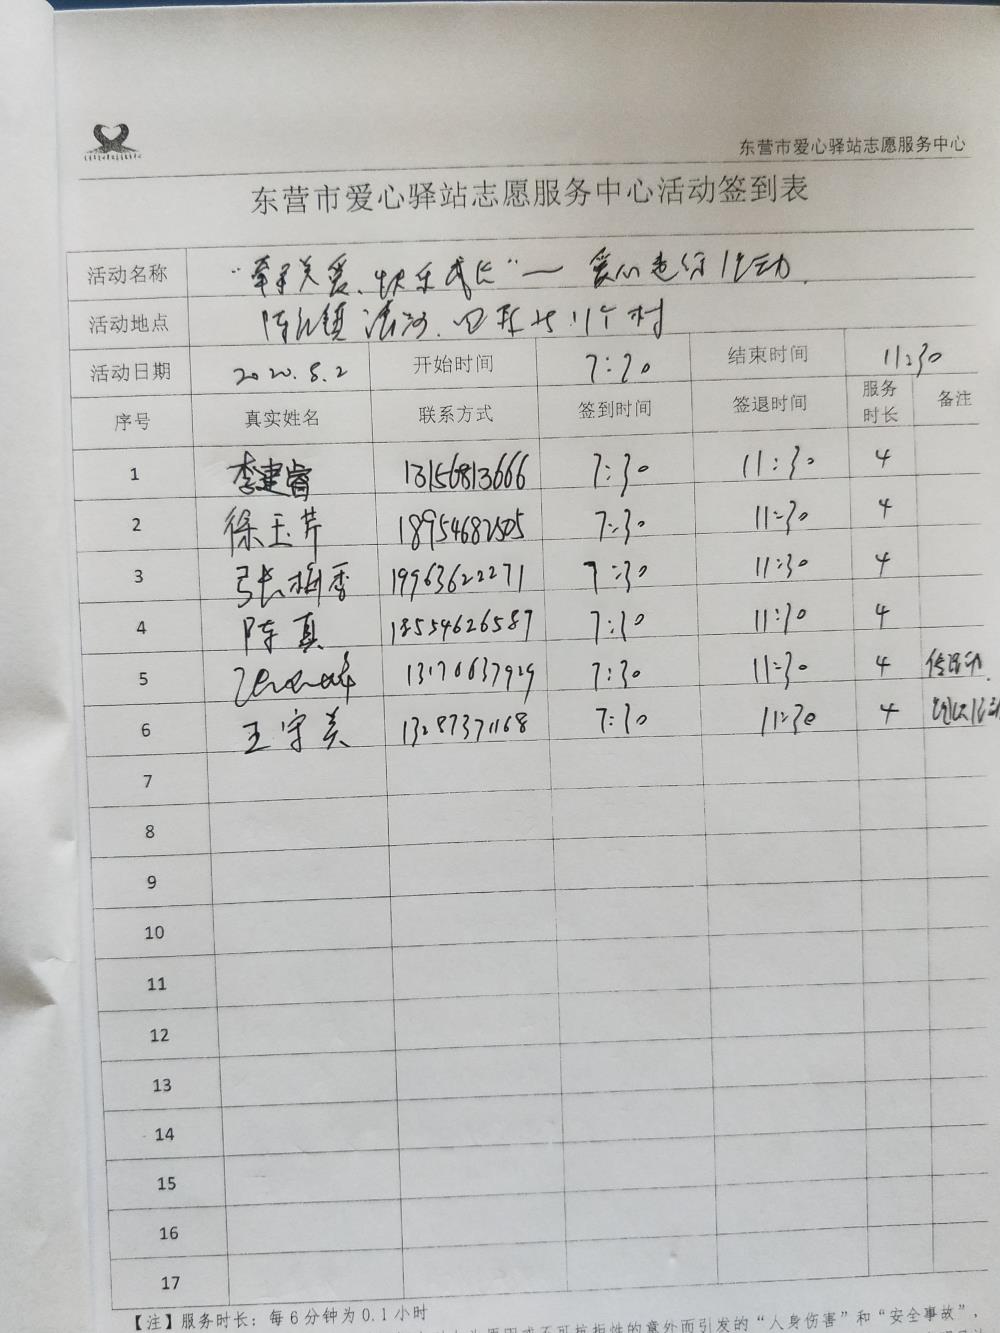 东营市爱心驿站志愿服务中心
东营市爱心驿站志愿服务中心活动签到表
活动名称 "牵手关爱、快乐成长"— 爱心进行 活动
活动地点 陈 镇 村
活动日期 2020.8.2 开始时间 7:30 结束时间 11:30
序号 真实姓名 联系方式 签到时间 签退时间 服务时长 备注
1 李建睿 13156813666 7:30 11:30 4
2 徐玉芹 18954682505 7:30 11:30 4
3 张梅香 19963622271 7:30 11:30 4
4 陈真 18554626587 7:30 11:30 4
5 13170637929 7:30 11:30 4
6 王守美 13287371168 7:30 11:30 4
7
8
9
10
11
12
13
14
15
16
17
【注】服务时长：每6分钟为0.1小时
不可抗拒性的意外而引发的“人身伤害”和“安全事故”，